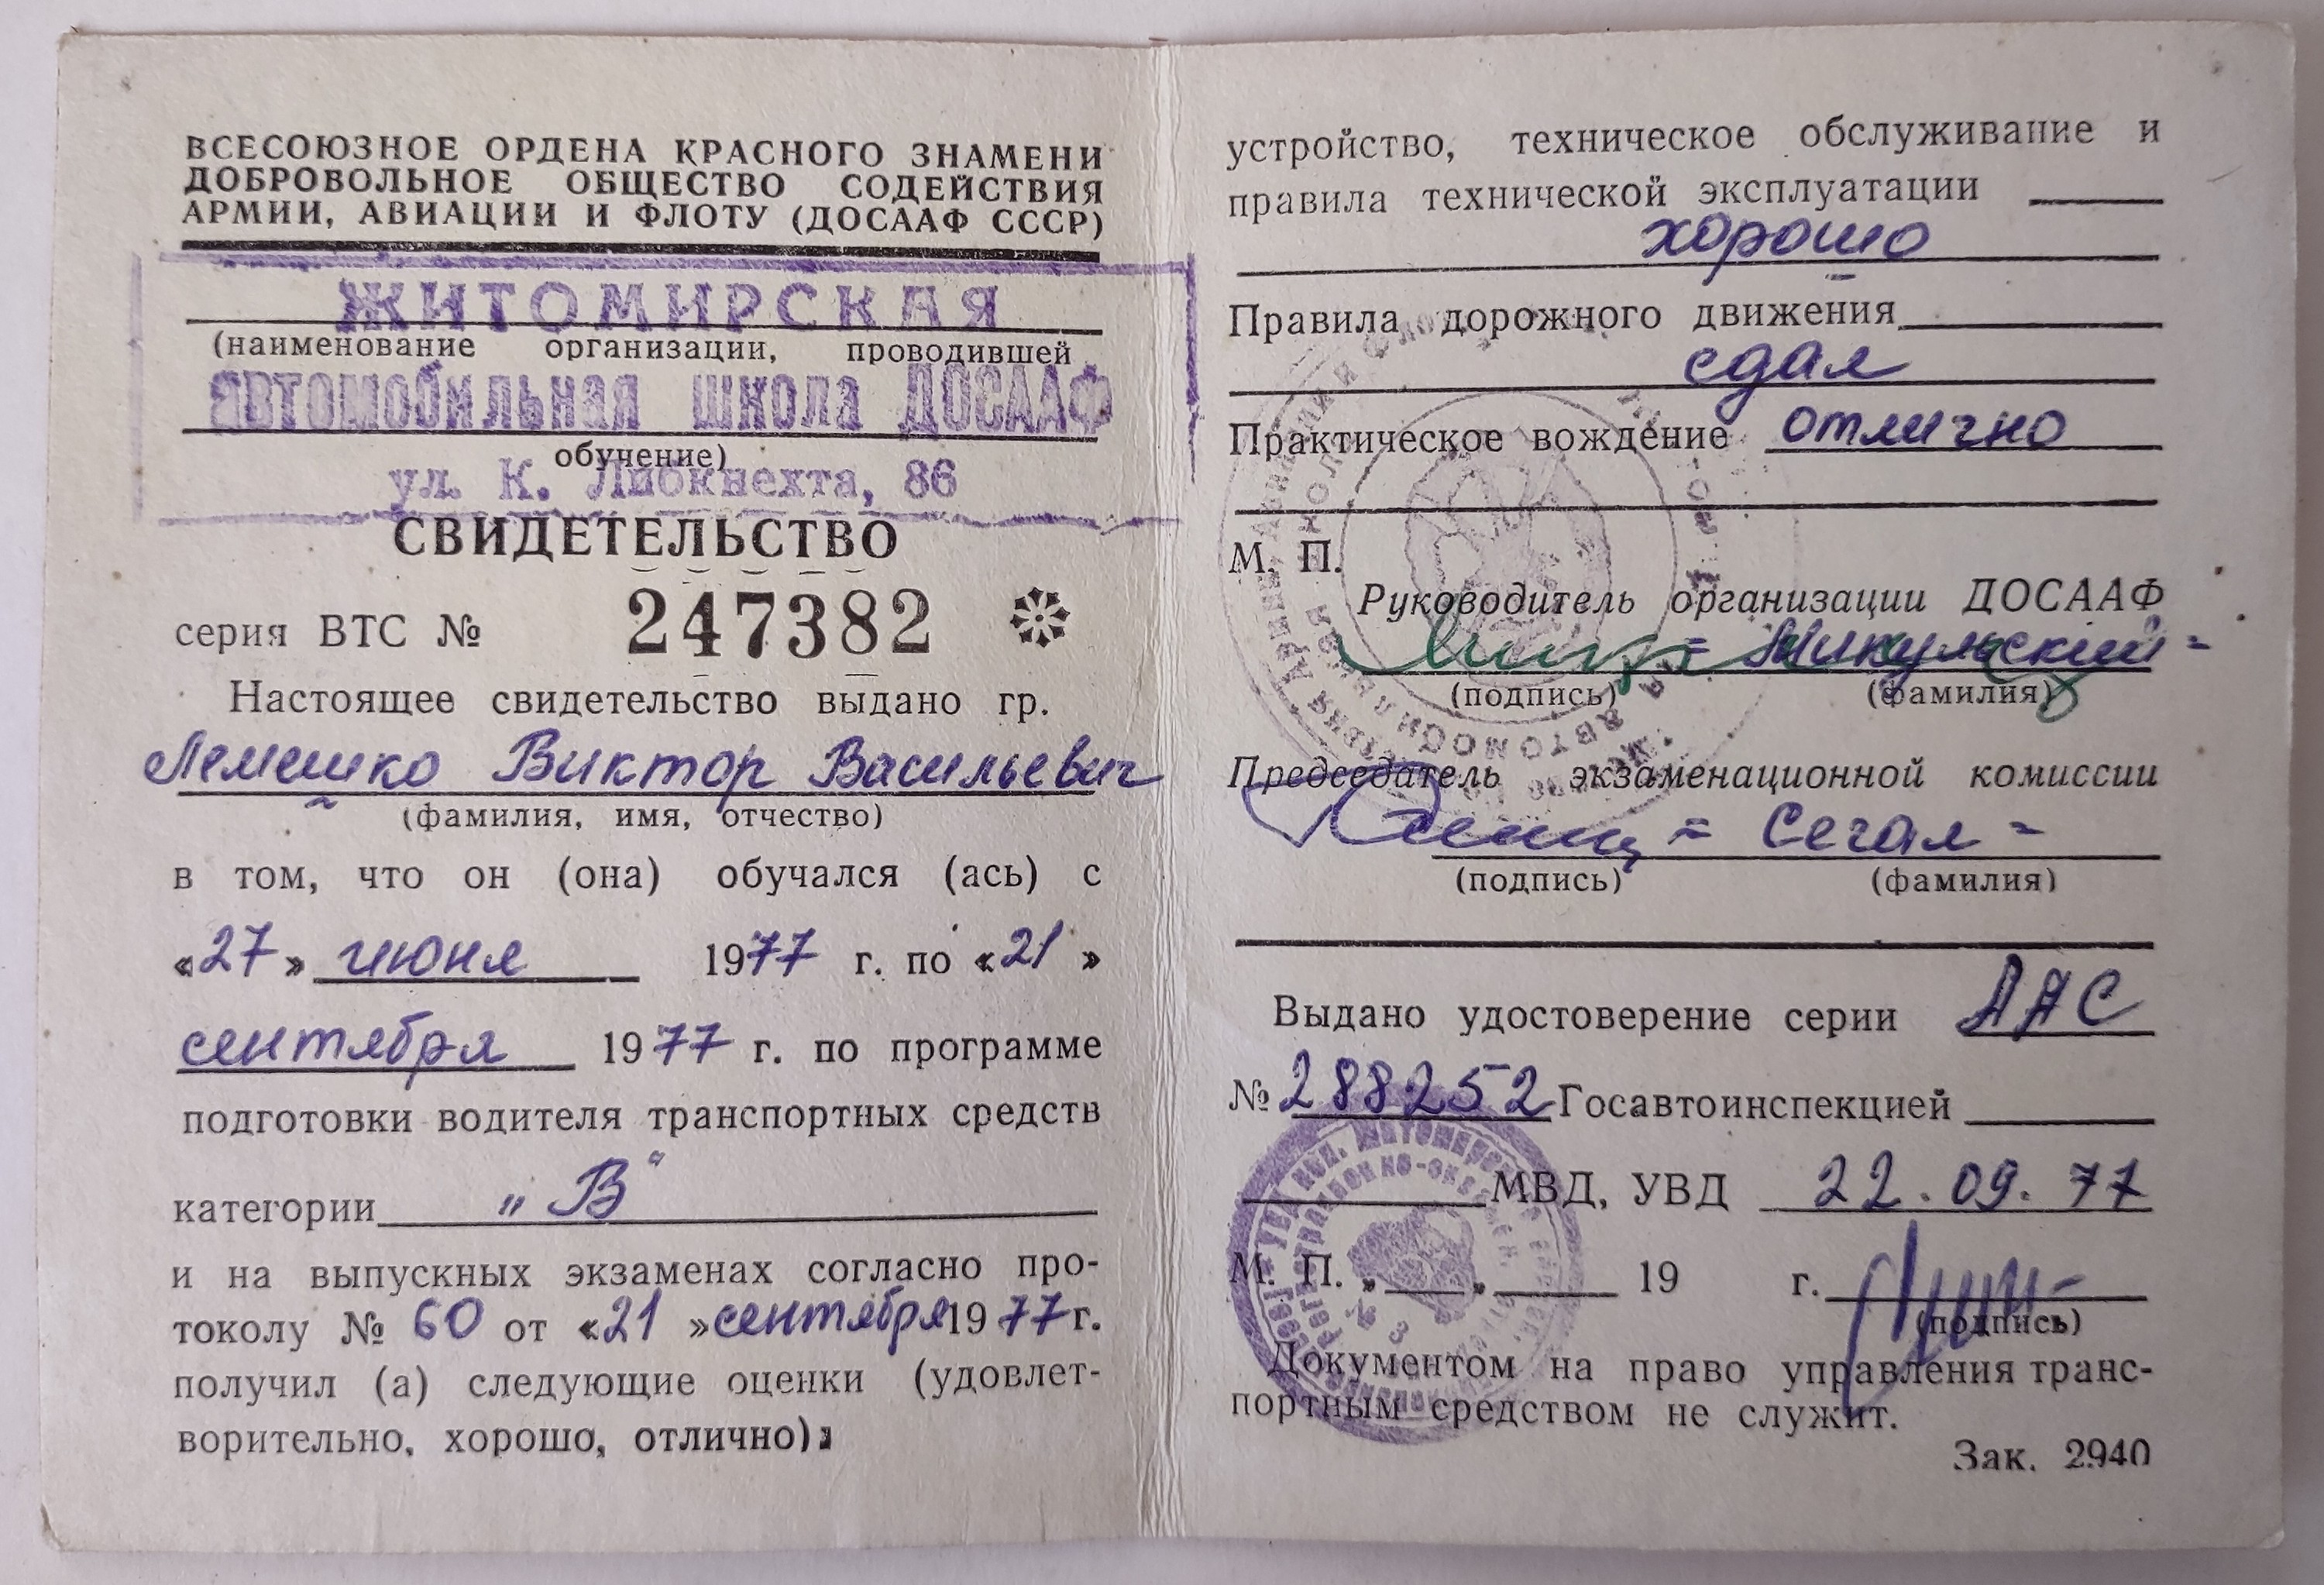 ВСЕСОЮЗНОЕ ОРДЕНА КРАСНОГО ЗНАМЕНИ
ДОБРОВОЛЬНОЕ ОБЩЕСТВО СОДЕЙСТВИЯ
АРМИИ, АВИАЦИИ И ФЛОТУ (ДОСААФ СССР)
ЖИТОМИРСКАЯ
(наименование организации, проводившей
автомобильная школа ДОСААФ
обучение)
ул. К. Либкнехта, 86
СВИДЕТЕЛЬСТВО
серия ВТС № 247382
Настоящее свидетельство выдано гр.
Лемешко Виктор Васильевич
(фамилия, имя, отчество)
в том, что он (она) обучался (ась) с
«27» июня 1977 г. по «21»
сентября 1977 г. по программе
подготовки водителя транспортных средств
категории „В"
и на выпускных экзаменах согласно про-
токолу № 60 от «21» сентября 1977 г.
получил (а) следующие оценки (удовлет-
ворительно, хорошо, отлично):
устройство, техническое обслуживание и
правила технической эксплуатации
хорошо
Правила дорожного движения
сдал
Практическое вождение отлично
М. П.
Руководитель организации ДОСААФ
= Микульский =
(подпись) (фамилия)
Председатель экзаменационной комиссии
= Сегал =
(подпись) (фамилия)
Выдано удостоверение серии ААС
№ 288252 Госавтоинспекцией
МВД, УВД 22.09.77
М. П. „ „ 19 г.
(подпись)
Документом на право управления транс-
портным средством не служит.
Зак. 2940